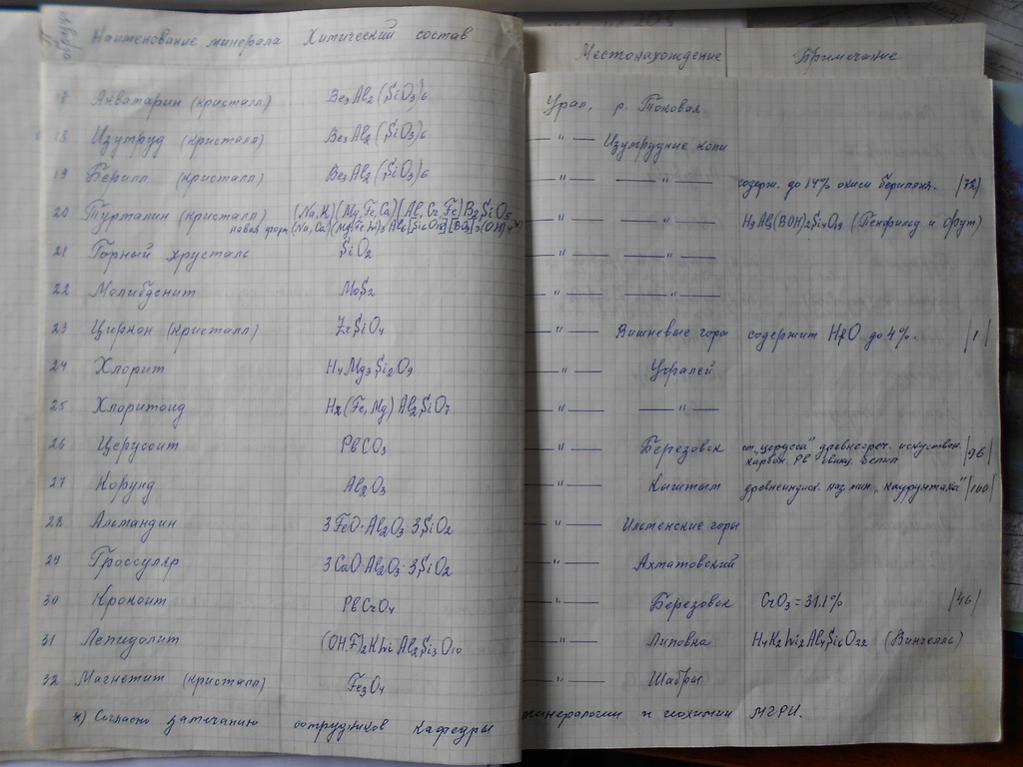 № образц Наименование минерала Химический состав Местонахождение Примечание
17 Аквамарин (кристалл) Be3Al2(SiO3)6 Урал, р. Токовая
18 Изумруд (кристалл) Be3Al2(SiO3)6 —"— Изумрудные копи
19 Берилл (кристалл) Be3Al2(SiO3)6 —"— —"— содерж. до 14% окиси бериллия. |72|
20 Турмалин (кристалл) (Na,K)(Mg,Fe,Ca)(Al,Cr,Fe)B2SiO5 —"— —"— H9Al3(BOH)2Si4O19 (Пенфильд и Фут)
новая форм. (Na,Ca)(Mg,Fe,Li)3Al6[Si6O18][BO3]3(OH)4 х)
21 Горный хрусталь SiO2 —"— —"—
22 Молибденит MoS2 —"— —"—
23 Циркон (кристалл) ZrSiO4 —"— Вишневые горы содержит H2O до 4%. |1|
24 Хлорит H4Mg3Si2O9 —"— Уфалей
25 Хлоритоид H2(Fe,Mg)Al2SiO7 —"— —"—
26 Церуссит PbCO3 —"— Березовск от „церусса" древнегреч. искуствен. |96|
карбон. Pb белил
27 Корунд Al2O3 —"— Кыштым древнеиндиск. наз. мин. „каурунтака" |100|
28 Альмандин 3FeO·Al2O3·3SiO2 —"— Ильменские горы
29 Гроссуляр 3CaO·Al2O3·3SiO2 —"— Ахматовский
30 Крокоит PbCrO4 —"— Березовск CrO3 = 31.1% |46|
31 Лепидолит (OH,F)2KLiAl2Si3O10 —"— Липовка H4K2Li2Al4Si6O22 (Винчелль)
32 Магнетит (кристалл) Fe3O4 —"— Шабры
х) Согласно замечанию сотрудников кафедры минералогии и геохимии МГРИ.